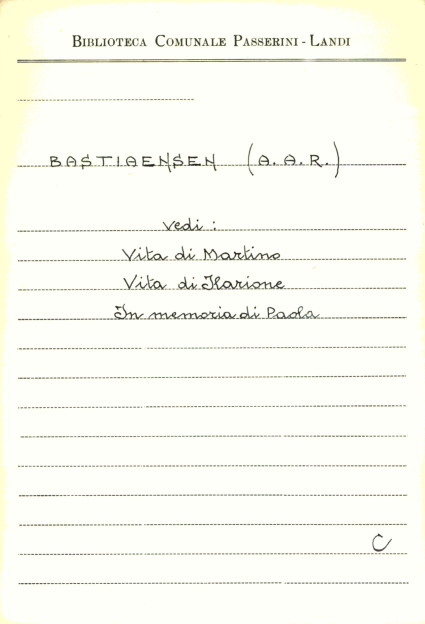 BIBLIOTECA COMUNALE PASSERINI - LANDI
BASTIAENSEN (A. A. R.)
vedi :
Vita di Martino
Vita di Ilarione
In memoria di Paola
C